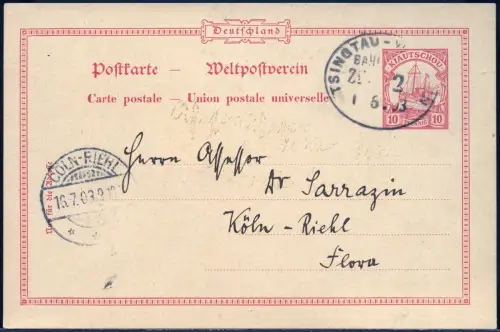 Deutschland
Postkarte — Weltpostverein
Carte postale — Union postale universelle
KIAUTSCHOU
10 10
TSINGTAU -
BAH
2
1 6. 03
CÖLN-RIEHL
16.7.03.9
Herrn Assessor
Dr Sarrazin
Köln - Riehl
Flora